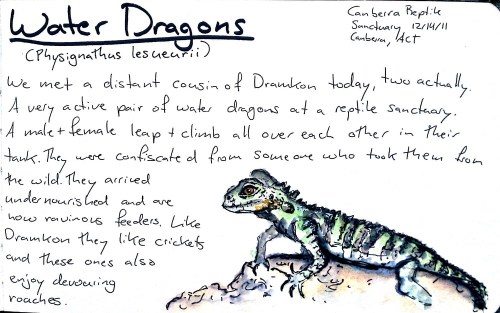 Water Dragons
(Physignathus lesueurii)
Canberra Reptile
Sanctuary 12/14/11
Canberra, ACT
We met a distant cousin of Dramkon today, two actually.
A very active pair of water dragons at a reptile sanctuary.
A male + female leap + climb all over each other in their
tank. They were confiscated from someone who took them from
the wild. They arrived
undernourished and are
now ravinous feeders. Like
Dramkon they like crickets
and these ones also
enjoy devouring
roaches.